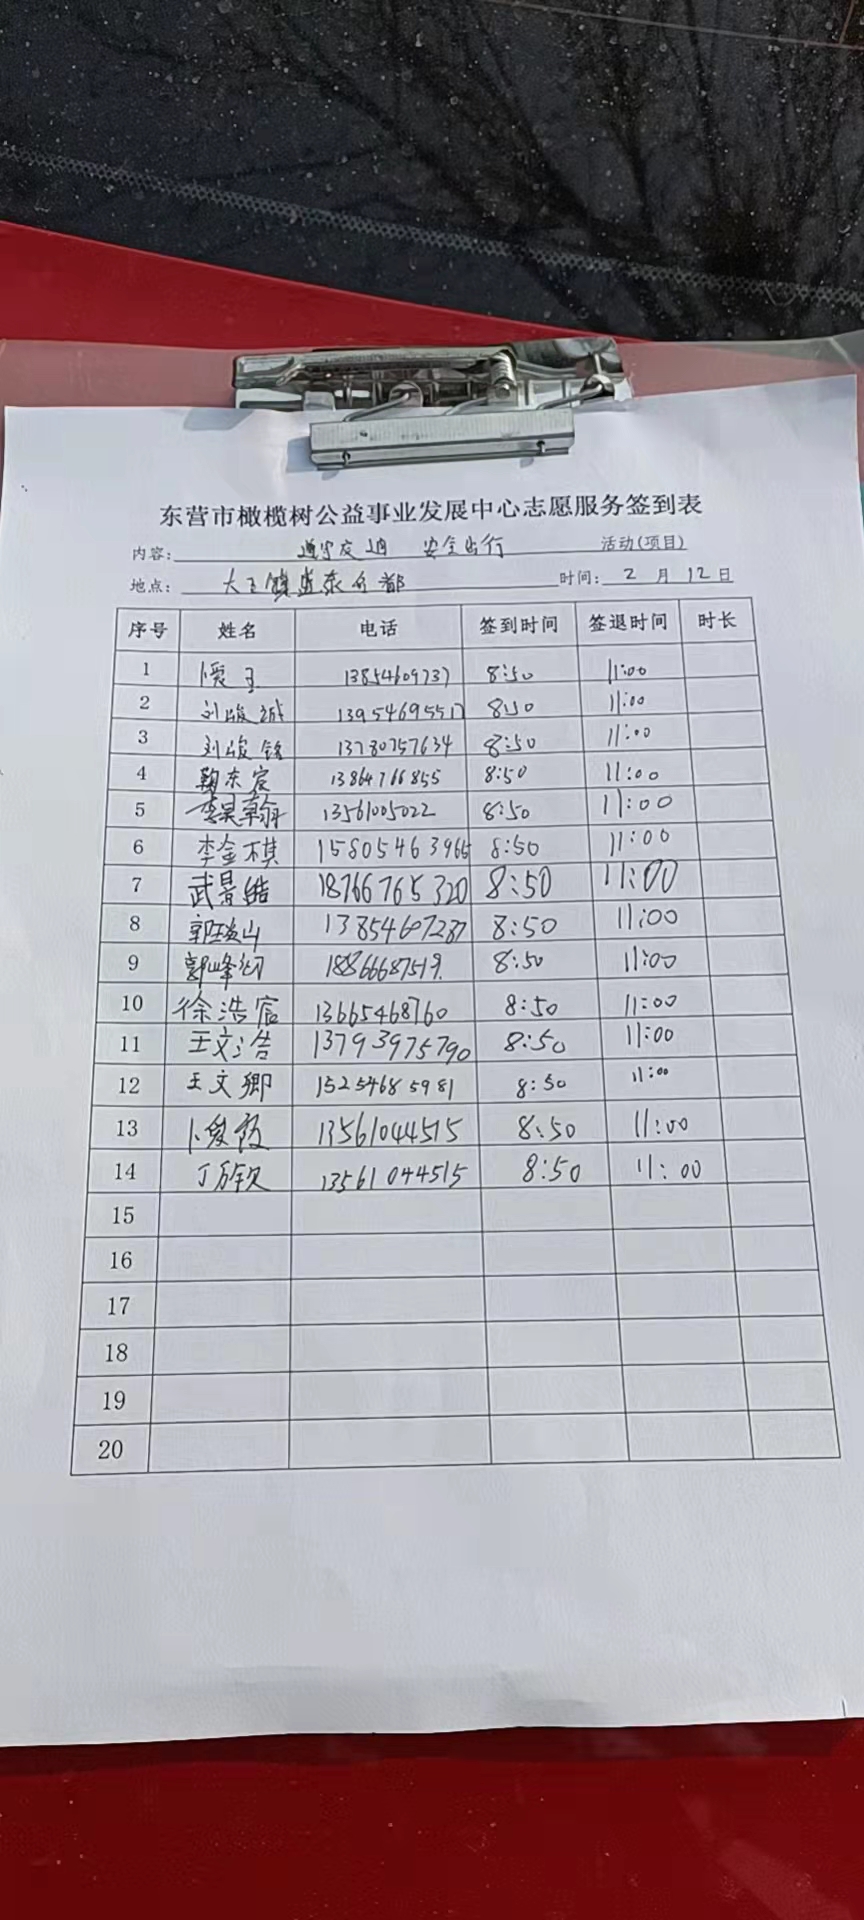 东营市橄榄树公益事业发展中心志愿服务签到表
内容: 遵守交通 安全出行 活动(项目)
地点: 大王镇盛泰 都 时间: 2 月 12 日
序号 姓名 电话 签到时间 签退时间 时长
1 13854609737 8:50 11:00
2 刘峻诚 13954695517 8:50 11:00
3 刘峻铭 13780757634 8:50 11:00
4 鞠东宸 13864766855 8:50 11:00
5 李昊翰 13561005022 8:50 11:00
6 李金棋 15805463965 8:50 11:00
7 武景皓 18766765320 8:50 11:00
8 郭 山 13854607287 8:50 11:00
9 郭峰 18866687519. 8:50 11:00
10 徐浩宸 13665468760 8:50 11:00
11 王文浩 13793975790 8:50 11:00
12 王文卿 15254685981 8:50 11:00
13 卜爱霞 13561044515 8:50 11:00
14 丁 钦 13561044515 8:50 11:00
15
16
17
18
19
20